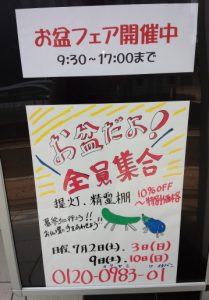 お盆フェア開催中
9:30～17:00まで
お盆だよ!
全員集合
提灯、精霊棚
10%OFF
～特別価格
墓参りに行こう!!
日程 7月2日(土)、3日(日)
9日(土)、10日(日)
0120-0983-01